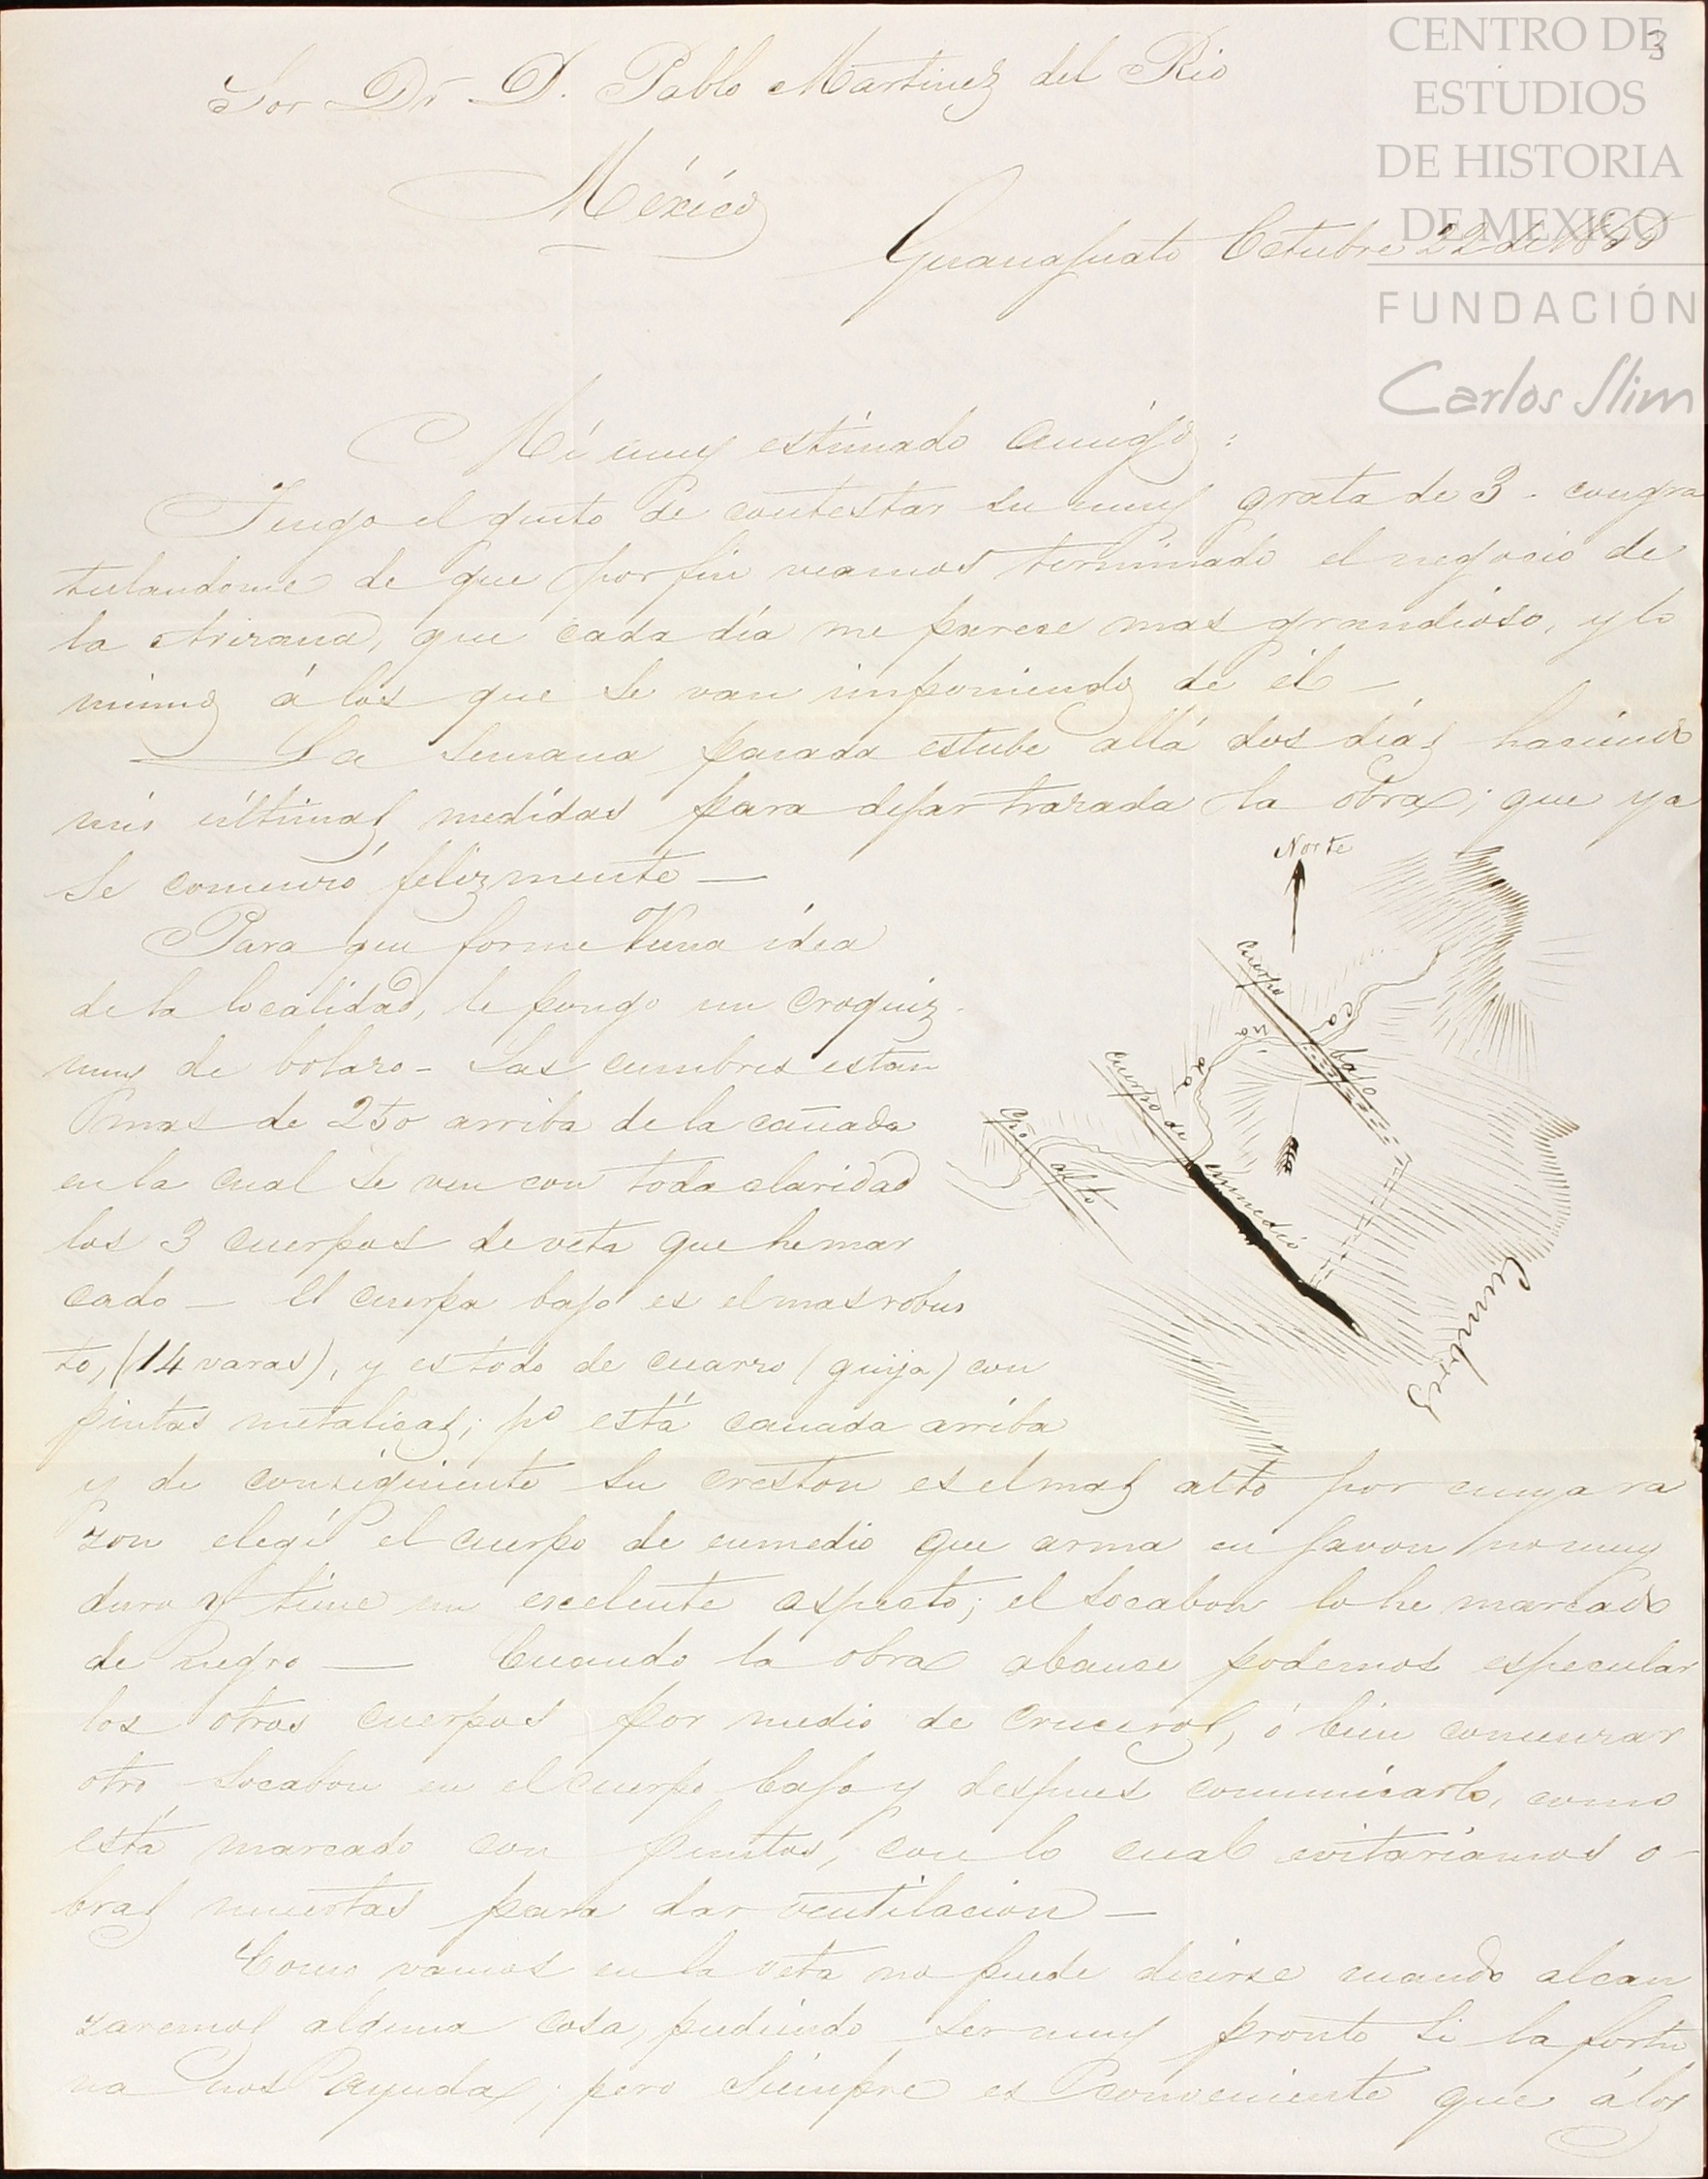 3
CENTRO DE
ESTUDIOS
DE HISTORIA
DE MEXICO
FUNDACIÓN
Carlos Slim
Sor Dr D. Pablo Martinez del Rio
México
Guanajuato Octubre 22 de
Mi muy estimado amigo:
Tengo el gusto de contestar su muy grata de 3 - congra
tulandome de que por fin veamos terminado el negocio de
la que cada día me parece mas grandioso, y lo
mismo á los que se van imponiendo de él -
La semana pasada estube allá dos días haciendo
mis últimas medidas para dejar trazada la obra; que ya
se comenzó felizmente —
Para que forme V una idea
de la localidad, le pongo un croquiz
muy de bolazo - Las cumbres estan
mas de 250 arriba de la cañada
en la cual se ven con toda claridad
los 3 cuerpos de veta que he mar
cado — El cuerpo bajo es el mas robus
to, (14 varas), y es todo de cuarzo (guija) con
pintas metalicas; po está cañada arriba
y de consiguiente su creston es el mas alto por cuya ra
zon elegí el cuerpo de enmedio que arma en favon no muy
duro y tiene un escelente aspecto; el socabon lo he marcado
de negro — Cuando la obra abance podemos especular
los otros cuerpos por medio de cruceros, ó bien comenzar
otro socabon en el cuerpo bajo y despues comunicarlo, como
está marcado con puntos, con lo cual evitaríamos o-
bras muertas para dar ventilacion —
Como vamos en la veta no puede decirse cuando alcan
zaremos alguna cosa, pudiendo ser muy pronto si la fortu
na nos ayuda; pero siempre es conveniente que á los
Norte
Cuerpo bajo
Cañada
Cuerpo de enmedio
Cpo alto
Cumbres